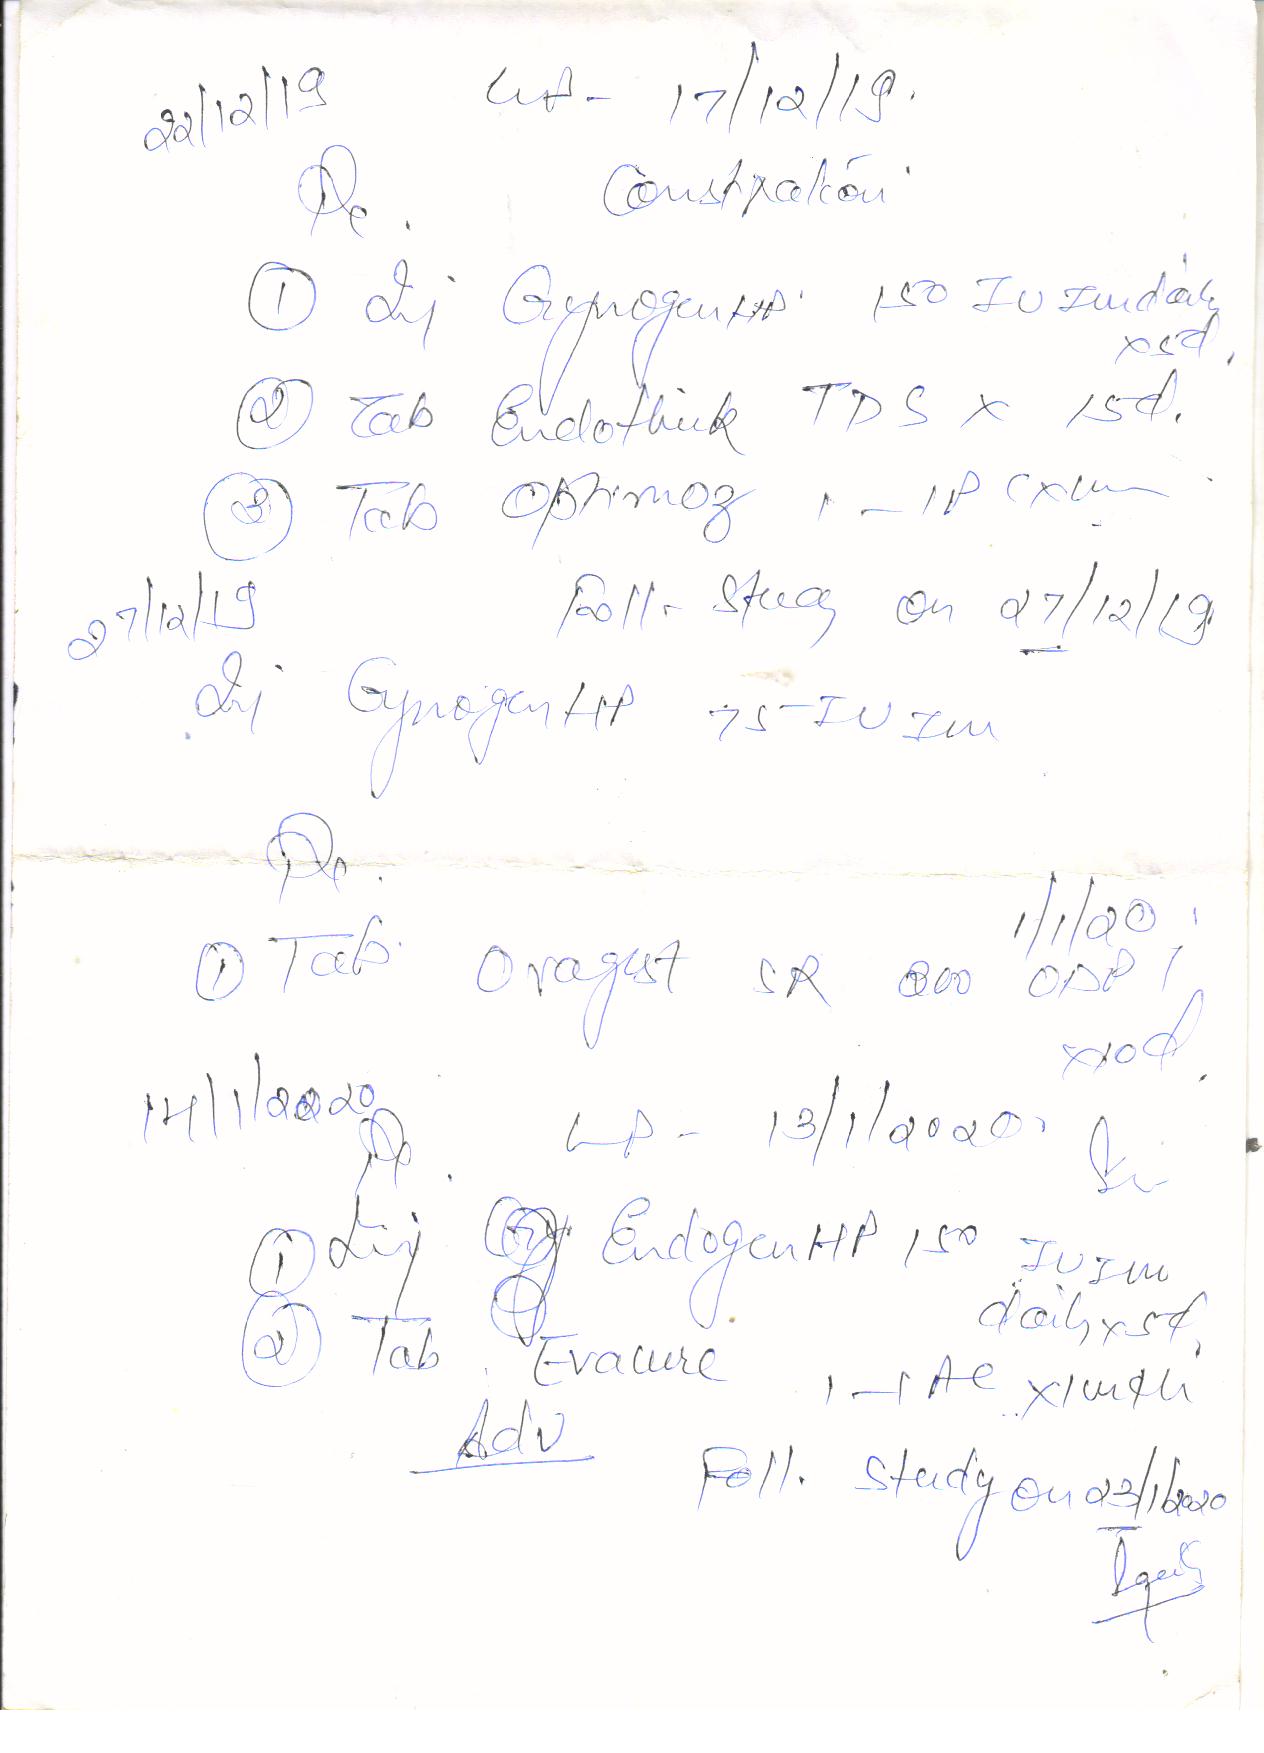 22/12/19 LMP - 17/12/19.
Rx. Constipation
① Inj Gynogen HP 150 IU Im daily
x5d.
② Tab Endothick TDS x 15d.
③ Tab Optimoz 1 - 1P
27/12/19 Foll. Study on 27/12/19
Inj Gynogen HP 75 IU Im
Rx.
1/1/20
① Tab. Ovagest SR 300 ODP
x10d
14/1/2020 LMP - 13/1/2020
Rx.
① Inj Endogen HP 150 IU Im
daily x5d.
② Tab Evacure 1-1 AC x1mth
Adv
Foll. Study on 23/1/2020